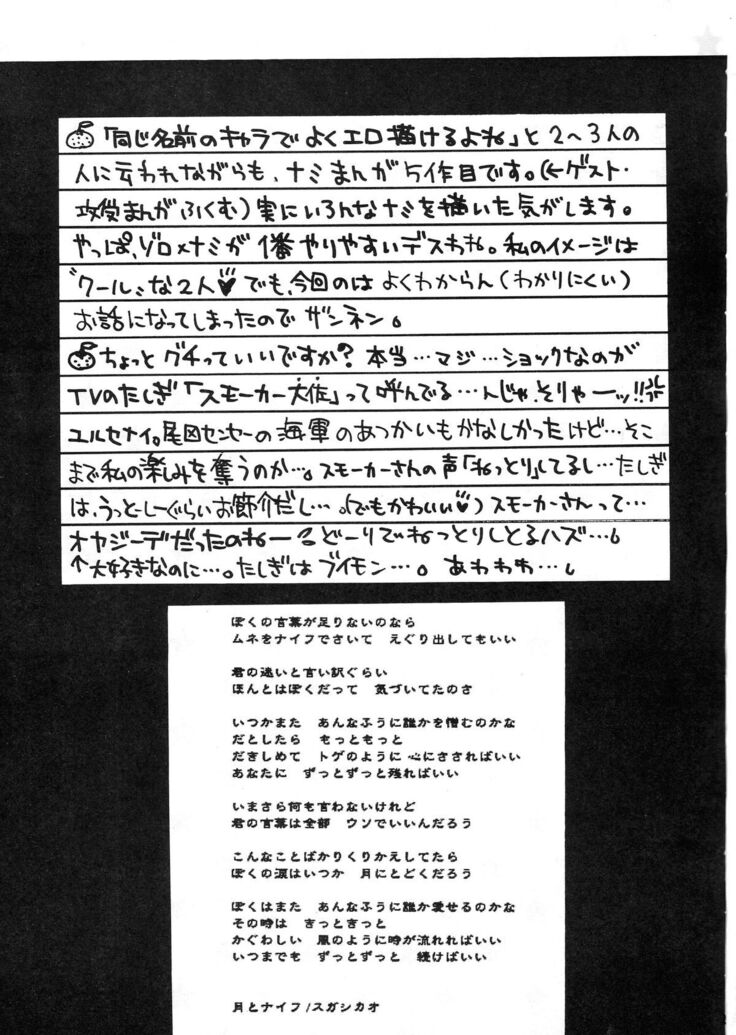 「同じ名前のキャラでよくエロ描けるよね」と2〜3人の
人に云われながらも、ナミまんが5作目です。(←ゲスト・
攻党まんがふくむ)実にいろんなナミを描いた気がします。
やっぱ、ゾロ×ナミが1番やりやすいデスわね。私のイメージは
〝クール〟な2人♥でも、今回のはよくわからん(わかりにくい)
お話になってしまったのでザンネン。
ちょっとグチっていいですか?本当…マジ…ショックなのが
TVのたしぎ「スモーカー大佐」って呼んでる…んじゃ、そりゃーッ!!
ユルセナイ。尾田センセーの海軍のあつかいもかなしかったけど…そこ
まで私の楽しみを奪うのか…。スモーカーさんの声「ねっとり」してるし…たしぎ
は、うっとーしーぐらいお節介だし…。(でもかわいい♥)スモーカーさんって…
オヤジーデだったのねーどーりでねっとりしとるハズ…。
↑大好きなのに…。たしぎはブイモン…。あわわわ…。
ぼくの言葉が足りないのなら
ムネをナイフでさいて えぐり出してもいい
君の迷いと言い訳ぐらい
ほんとはぼくだって 気づいてたのさ
いつかまた あんなふうに誰かを憎むのかな
だとしたら もっともっと
だきしめて トゲのように 心にささればいい
あなたに ずっとずっと残ればいい
いまさら何も言わないけれど
君の言葉は全部 ウソでいいんだろう
こんなことばかりくりかえしてたら
ぼくの涙はいつか 月にとどくだろう
ぼくはまた あんなふうに誰か愛せるのかな
その時は きっときっと
かぐわしい 風のように時が流れればいい
いつまでも ずっとずっと 続けばいい
月とナイフ/スガシカオ